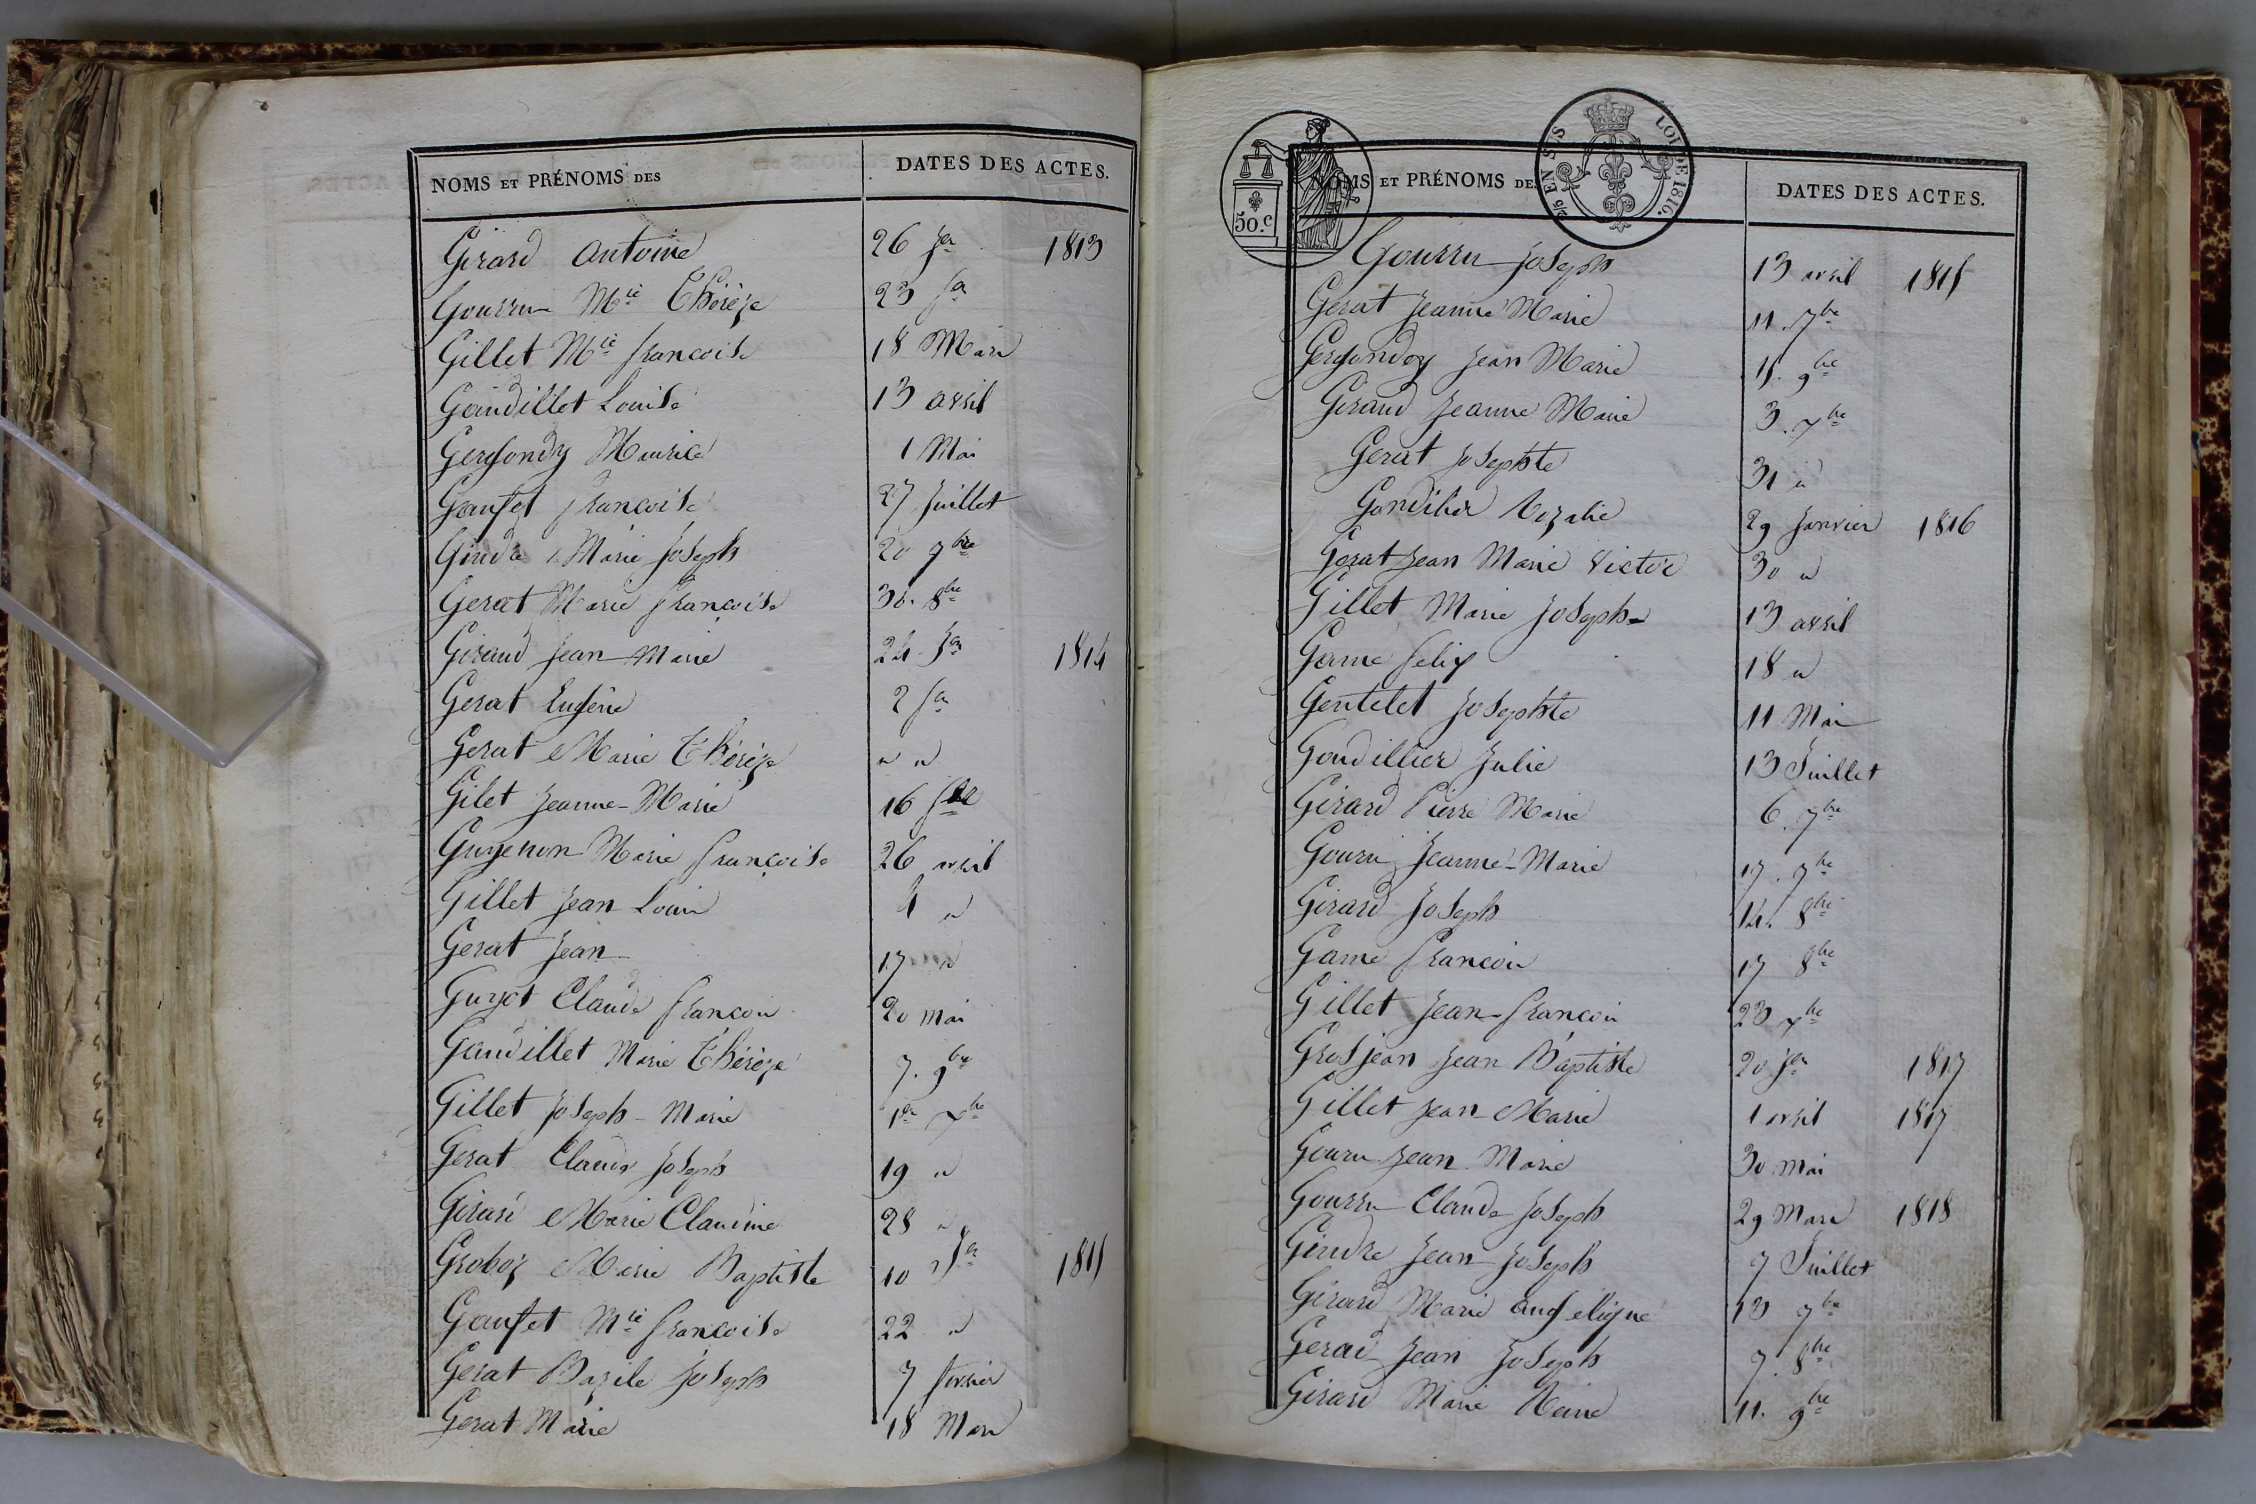 NOMS ET PRÉNOMS DES DATES DES ACTES.
Girard Antoine 26 Jer 1813
Gourru Mie Thérèze 23 fer
Gillet Mie francoise 18 Mars
Gandillet Louise 13 avril
Gergondy Maurice 1 Mai
Gaufet francoise 27 Juillet
Gindre Marie Joseph 20 9bre
Gerat Marie françoise 30. 8bre
Giraud Jean Marie 24 Jer 1814
Gerat Eugène 2 fer
Gerat Marie Thérèze " "
Gilet Jeanne-Marie 16
Guyenon Marie françoise 26 avril
Gillet Jean Louis 4 "
Gerat Jean 17 "
Guyot Claude francois 20 mai
Gandillet Marie Thérèze 7. 9bre
Gillet Joseph-Marie 1er Xbre
Gerat Claude Joseph 19 "
Girard Marie Claudine 28 "
Groboz Marie Baptiste 10 Jer 1815
Gaufet Mie francoise 22 "
Gerat Bazile Joseph 7 fevrier
Gerat Marie 18 Mars
50.c
EN SUS LOI DE 1816.
NOMS ET PRÉNOMS DES DATES DES ACTES.
Gourru Joseph 13 avril 1815
Gerat Jeanne Marie 11. 7bre
Jean Marie 15. 9bre
Giraud Jeanne Marie 3. Xbre
Gerat Josephte 31 "
Gandilier Rozalie 29 Janvier 1816
Gerat Jean Marie Victor 30 "
Gillet Marie Joseph 13 avril
Game felix 18 "
Gentelet Josephte 11 Mai
Gondillier Julie 13 Juillet
Girard Pierre Marie 6. 7bre
Gouru Jeanne-Marie 17. 7bre
Girard Joseph 14. 8bre
Game francois 17 8bre
Gillet Jean-francois 23 Xbre
Grosjean Jean Baptiste 20 Jer 1817
Gillet Jean Marie 1 avril 1817
Gouru Jean Marie 30 Mai
Gourru Claude Joseph 29 Mars 1818
Gindre Jean Joseph 7 Juillet
Girard Marie angelique 10 7bre
Gerad Jean Joseph 7. 8bre
Girard Marie Reine 11. 9bre